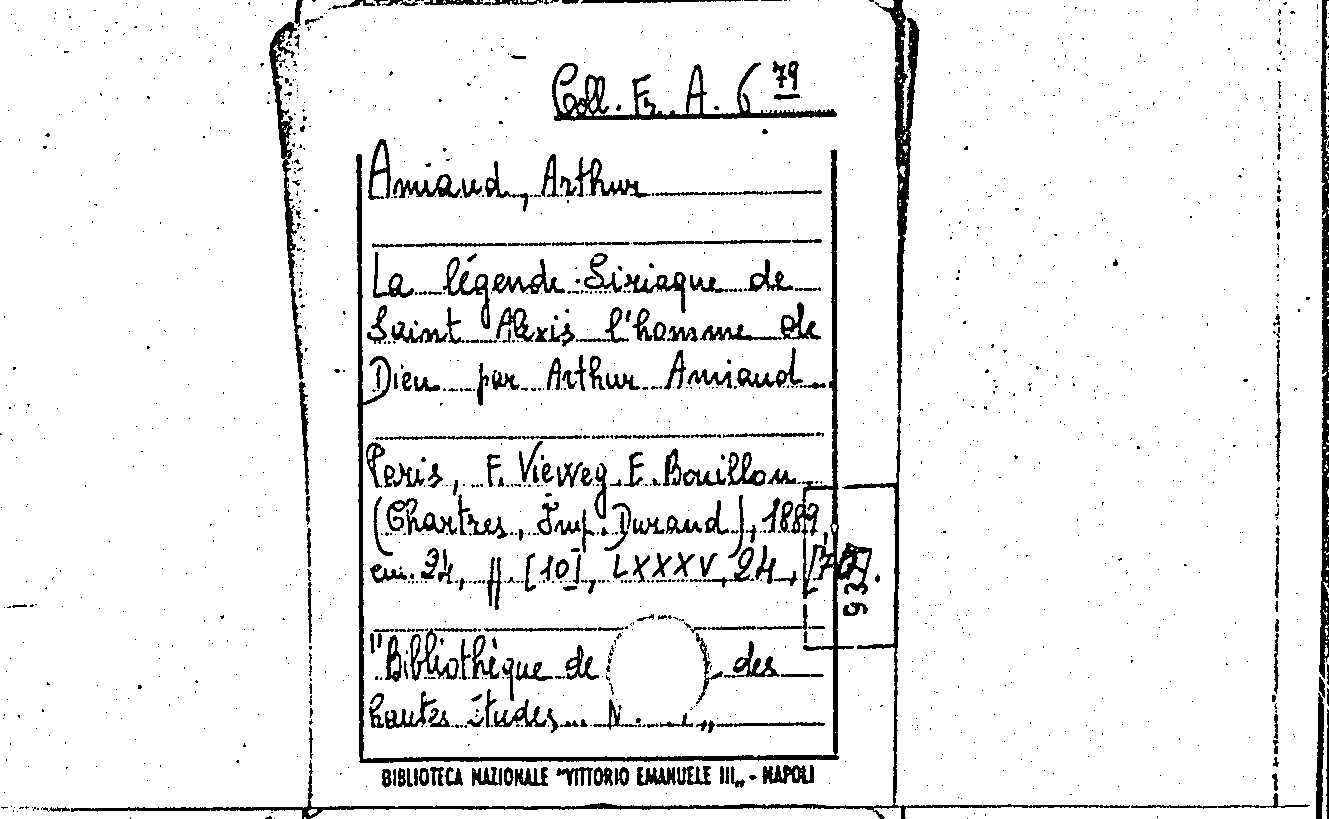 Coll. Fr. A. 6 79
Amiaud, Arthur
La légende Siriaque de
Saint Alexis l'homme de
Dieu par Arthur Amiaud
Paris, F. Vieweg E. Bouillon
(Chartres, Imp. Durand), 1889,
cm. 24, pp. [10], LXXXV, 24,
"Bibliothèque de des
hautes études... N.
BIBLIOTECA NAZIONALE "VITTORIO EMANUELE III„ - NAPOLI